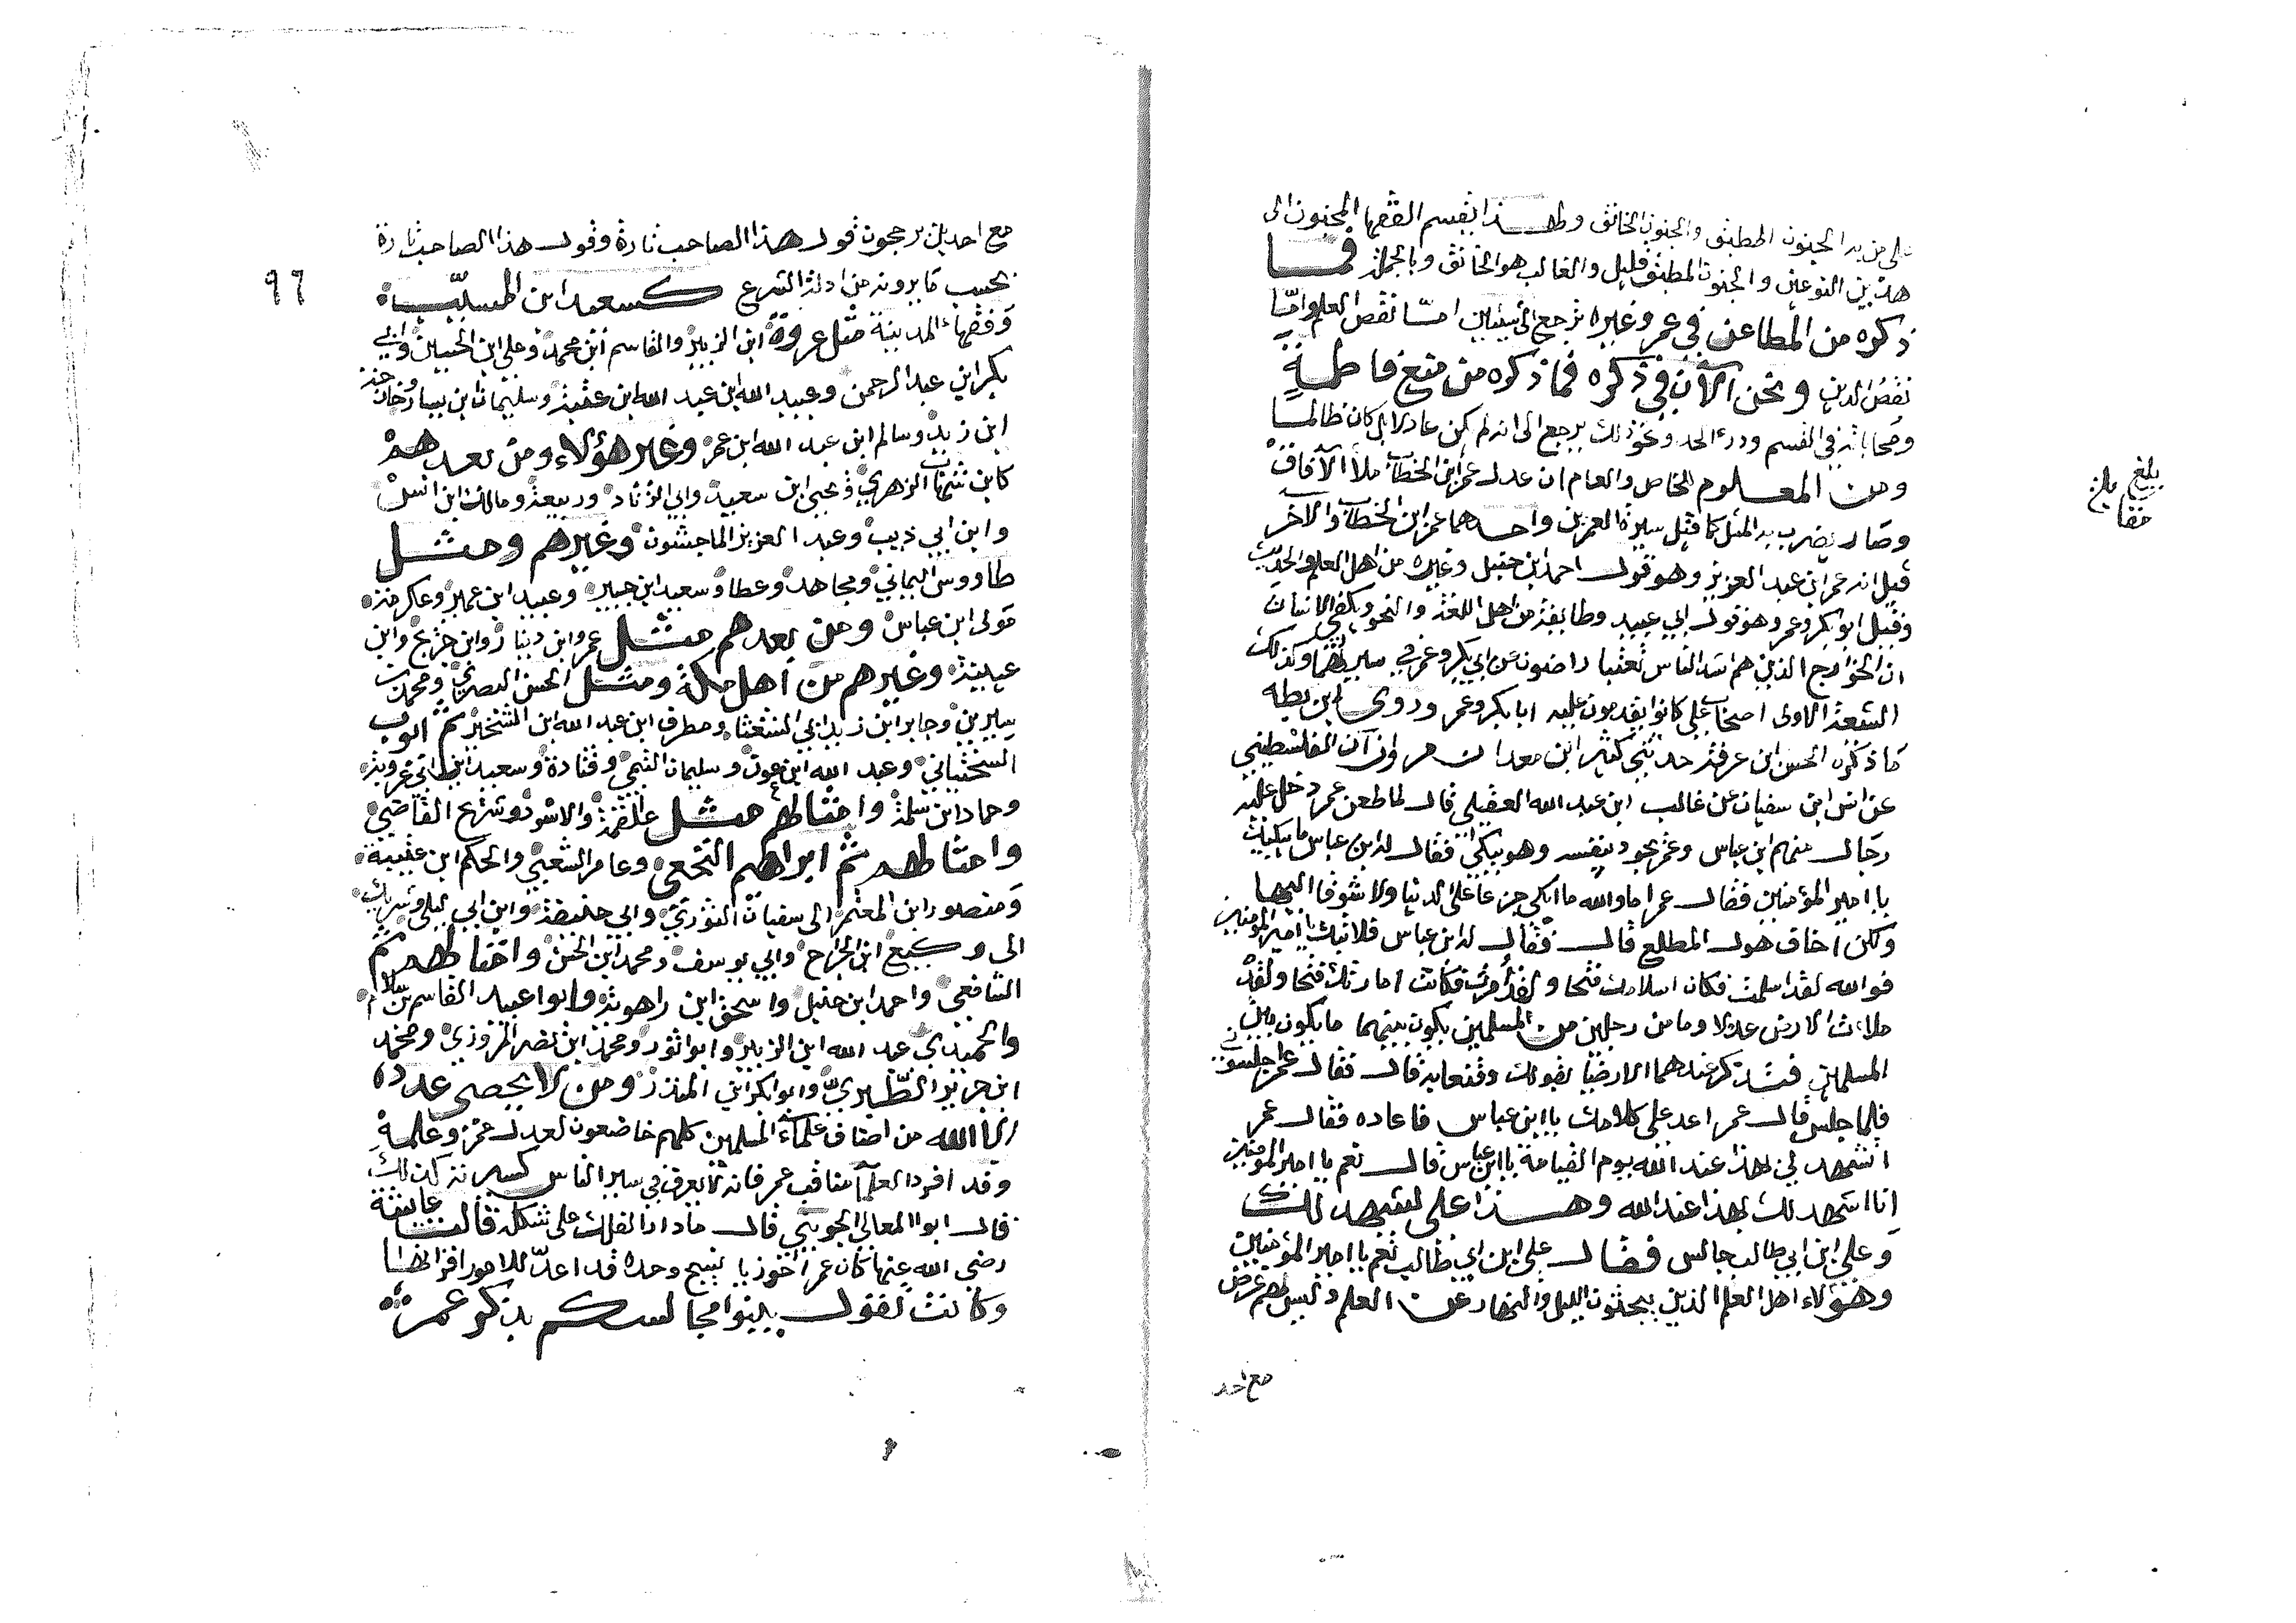 على من به الجنون المطبق والجنون الخانق ولهذا يقسم الفقها الجنون الى
هذين النوعين والجنون المطبق قليل والغالب هو الخانق وبالجملة فما
ذكره من المطاعن في عمر وغيره يرجع الى شيئين امّا نقص العلم وامّا
نقص الدين ونحن الآن في ذكره فما ذكره من منع فاطمة
ومحاباته في القسم ودرء الحد ونحو ذلك يرجع الى انه لم يكن عادلا بل كان ظالما
ومن المعلوم للخاص والعام ان عدل عمر ابن الخطاب ملأ الآفاق
وصار يضرب به المثل كما قيل سيرة العمرين واحدهما عمر ابن الخطاب والاخر
قيل انه عمر ابن عبد العزيز وهو قول احمد ابن حنبل وغيره من اهل العلم والحديث
وقيل ابو بكر وعمر وهو قول ابي عبيد وطايفة من اهل اللغة والنحو ويكفي الانسان
ان الخوارج الذين هم اشد الناس تعنتا راضون عن ابي بكر وعمر في سيرتهما وكذلك
الشيعة الاولى اصحاب علي كانوا يقدمون عليه ابا بكر وعمر وروى ابن بطه
ما ذكره الحسن ابن عرفة حدثني كثير ابن مروان الفلسطيني
عن انس ابن سفيان عن غالب ابن عبد الله العقيلي قال لما طعن عمر دخل عليه
رجال منهم ابن عباس وعمر يجود بنفسه وهو يبكي فقال له ابن عباس ما يبكيك
يا امير المؤمنين فقال عمر اما والله ما ابكي جزعا على الدنيا ولا شوقا اليها
ولكن اخاف هول المطلع قال فقال له ابن عباس فلا تبك يا امير المؤمنين
فوالله لقد اسلمت فكان اسلامك فتحا ولقد أُمرت فكانت امارتك فتحا ولقد
ملات الارض عدلا وما من رجلين من المسلمين يكون بينهما ما يكون بين
المسلمين فتذكر عندهما الا رضيا بقولك وقنعا به قال فقال عمر اجلسوني
فلما جلس قال عمر اعد علي كلامك يا ابن عباس فاعاده فقال عمر
اتشهد لي بهذا عند الله يوم القيامة يا ابن عباس قال نعم يا امير المؤمنين
انا اشهد لك بهذا عند الله وهذا علي يشهد لك
وعلي ابن ابي طالب جالس فقال علي ابن ابي طالب نعم يا امير المؤمنين
وهؤلاء اهل العلم الذين يبحثون الليل والنهار عن العلم وليس لهم غرض
مع احد
بلغ
مقابلة
مع احد بل يرجحون قول هذا الصاحب تارة وقول هذا الصاحب تارة
بحسب ما يرونه من ادلة الشرع كسعيد ابن المسيّب
وفقهاء المدينة مثل عروة ابن الزبير والقاسم ابن محمد وعلي ابن الحسين وابي
بكر ابن عبد الرحمن وعبيد الله ابن عبد الله ابن عتبة وسليمان ابن يسار وخارجة
ابن زيد وسالم ابن عبد الله ابن عمر وغير هؤلاء ومن بعدهم
كابن شهاب الزهري ويحيى ابن سعيد وابي الزناد وربيعة ومالك ابن انس
وابن ابي ذيب وعبد العزيز الماجشون وغيرهم ومثل
طاووس اليماني ومجاهد وعطا وسعيد ابن جبير وعبيد ابن عمير وعكرمة
مولى ابن عباس ومن بعدهم مثل عمرو ابن دينار وابن جريج وابن
عيينة وغيرهم من أهل مكة ومثل الحسن البصري ومحمد بن
سيرين وجابر ابن زيد ابي الشعثا ومطرف ابن عبد الله ابن الشخير ثم ايوب
السختياني وعبد الله ابن عون وسليمان التيمي وقتادة وسعيد ابن ابي عروبة
وحماد ابن سلمة وامثالهم مثل علقمة والاسود وشريح القاضي
وامثالهم ثم ابراهيم النخعي وعامر الشعبي والحكم ابن عتيبة
ومنصور ابن المعتمر الى سفيان الثوري وابي حنيفة وابن ابي ليلى وشريك
الى وكيع ابن الجراح وابي يوسف ومحمد ابن الحسن وامثالهم ثم
الشافعي واحمد ابن حنبل واسحق ابن راهويه وابو عبيد القاسم بن سلام
والحميدي عبد الله ابن الزبير وابو ثور ومحمد ابن نصر المروزي ومحمد
ابن جرير الطّبري وابو بكر ابن المنذر ومن لا يحصى عدده
الا الله من اصناف علماء المسلمين كلهم خاضعون لعدل عمر وعلمه
وقد افرد العلما مناقب عمر فانه لا يعرف في سير الناس كسيرته كذلك
قال ابو المعالي الجويني قال ما دار الفلك على شكله قالت عايشة
رضي الله عنها كان عمر احوذيا نسيج وحده قد اعدّ للامور اقرانها
وكانت تقول زينوا مجالسكم بذكر عمر
٩٦